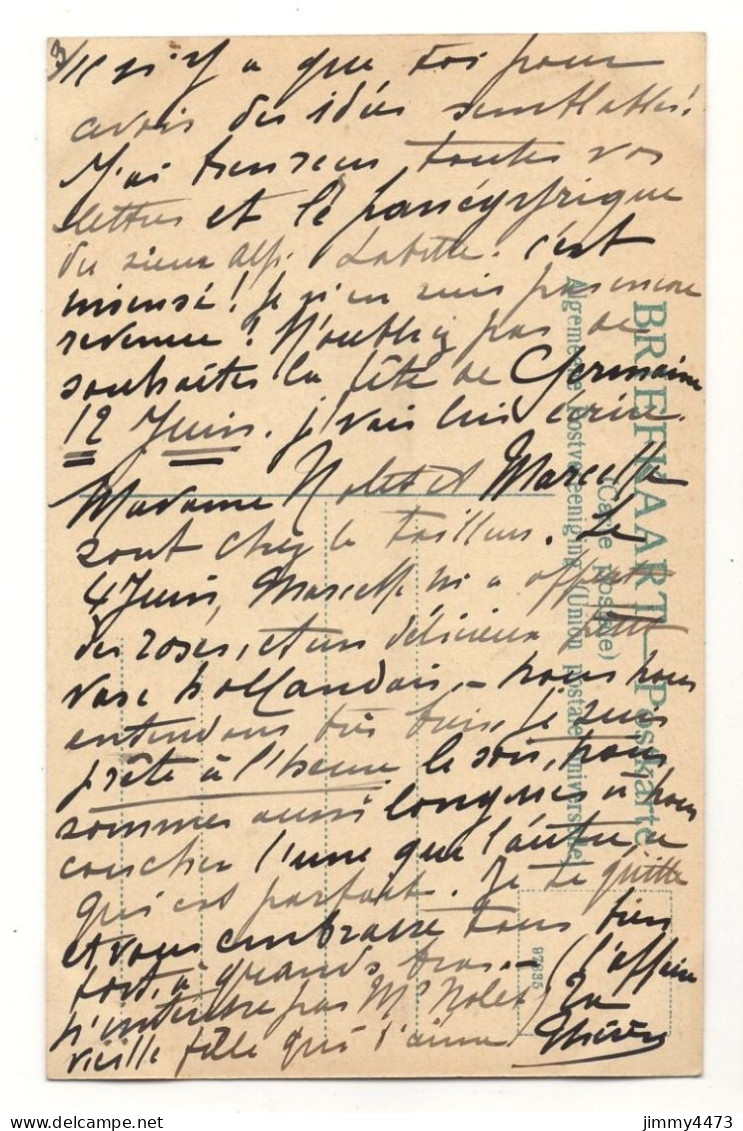 3/ Il n'y a que toi pour
avoir des idées semblables!
J'ai bien reçu toutes vos
lettres et le panégyrique
du sieur Alf. Labitte. C'est
insensé! Je n'en suis pas encore
revenue! N'oubliez pas de
souhaiter la fête de Germaine
12 Juin. J'vais lui écrire.
Madame Nolet et Marcelle
sont chez le tailleur. Le
4 Juin, Marcelle m'a offert
des roses, et un délicieux petit
vase hollandais, - nous nous
entendons très bien, je suis
prête à l'heure. Le soir, nous
sommes aussi longues à nous
coucher l'une que l'autre, ce
qui est parfait. Je te quitte
et vous embrasse tous bien
fort, à grands bras. - (l'affaire
n'intéresse pas Mr Nolet) Ta
vieille fille qui t'aime
BRIEFKAART - Postkarte
(Carte postale)
Algemeene Postvereeniging (Union postale universelle)
97835
jimmy4473